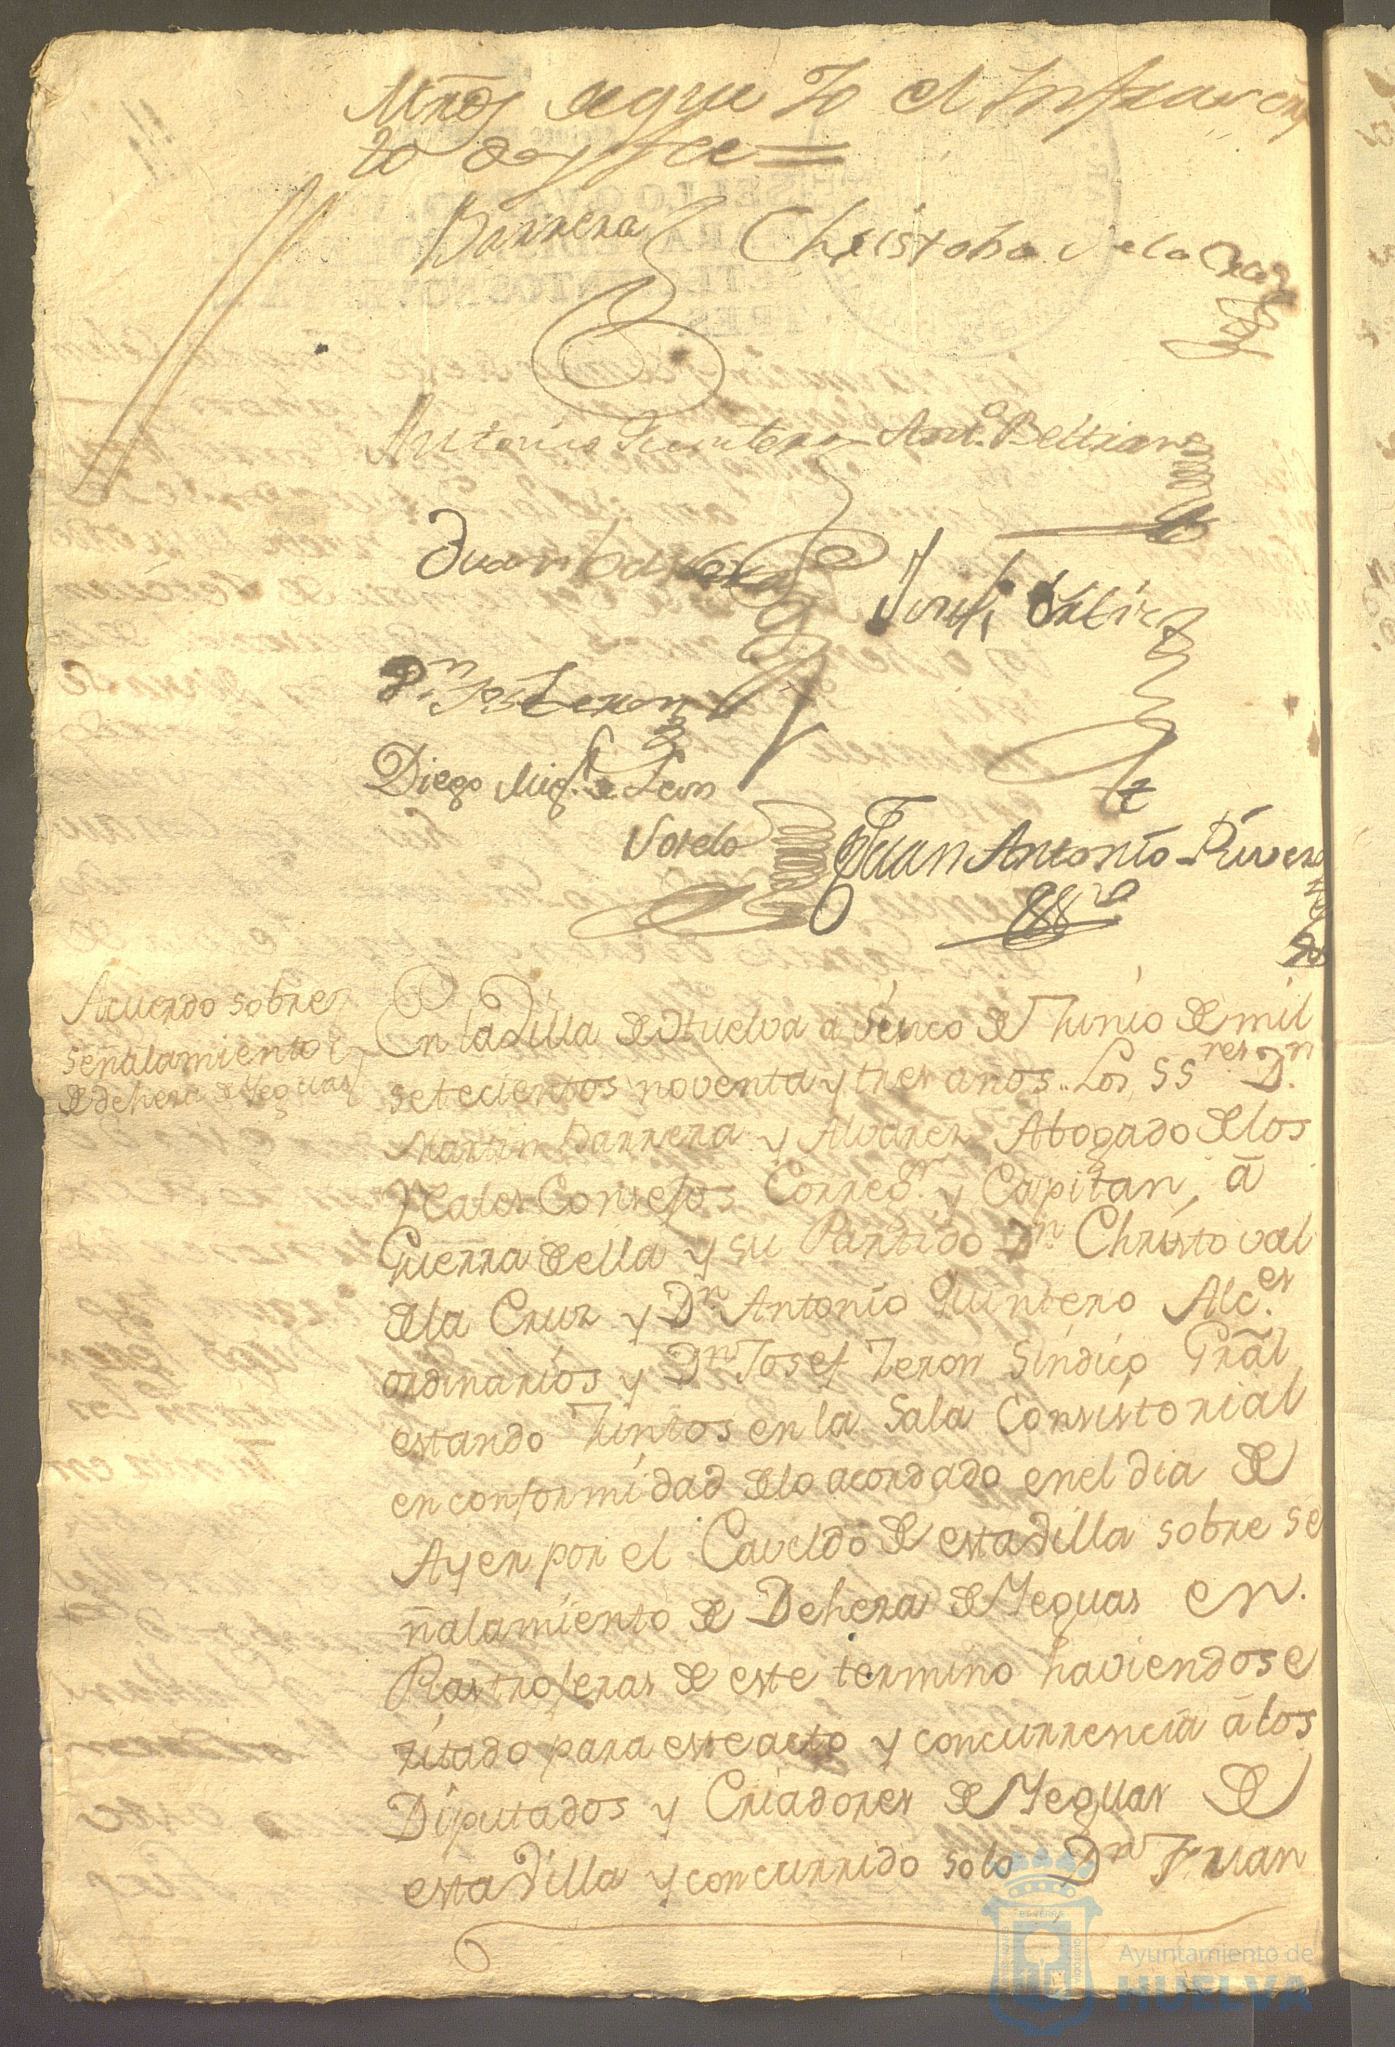 Mrds aque Yo el Infraescrip
to doy fee =
Barrera Christobal de la Cruz
Antonio Quintero Antº Beltran
Juan Josef Ortiz
Dn Josef Zeron
Diego Migl de Leon
Sotelo Juan Antonio Rivera
Acuerdo sobre
señalamiento
de dehesa de Yeguas
En la Villa de Huelva a sinco de Junio de mil
setecientos noventa y tres años.. Los SSres Dn
Martin Barrera y Alvarez Abogado de los
Reales Consejos Corregr y Capitan, á
Guerra de ella y su Partido Dn Christoval
de la Cruz y Dn Antonio Quintero Alces
ordinarios y Dn Josef Zeron Síndico Grãl
estando Juntos en la Sala Consistorial
en conformidad de lo acordado en el dia de
Ayer por el Caveldo de esta Villa sobre se
ñalamiento de Dehesa de Yeguas en
Rastrojeras de este termino haviendose
zitado para este acto y concurrencia á los
Diputados y Criadores de Yeguas de
esta Villa y concurrido solo Dn Juan
Ayuntamiento de
HUELVA